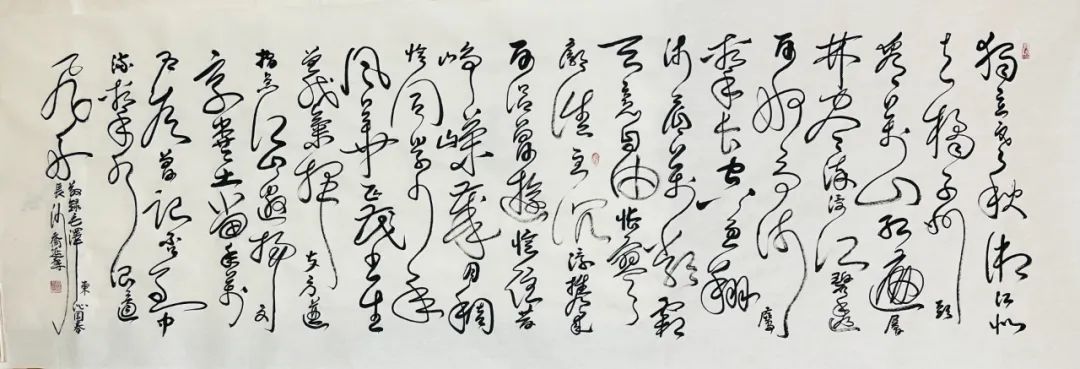 独立寒秋湘江北
去橘子洲头
看万山红遍层
林尽染漫江碧透
百舸争流鹰
击长空鱼翔
浅底万类霜
天竞自由怅寥
廓谁主沉浮携来
百侣曾游忆往昔
峥嵘岁月稠
恰同学少年
风华正茂书生
意气挥斥方遒
指点江山激扬文
字粪土当年万
户侯曾记否到中
流击水浪遏
飞舟
敬录毛泽东沁园春
长沙